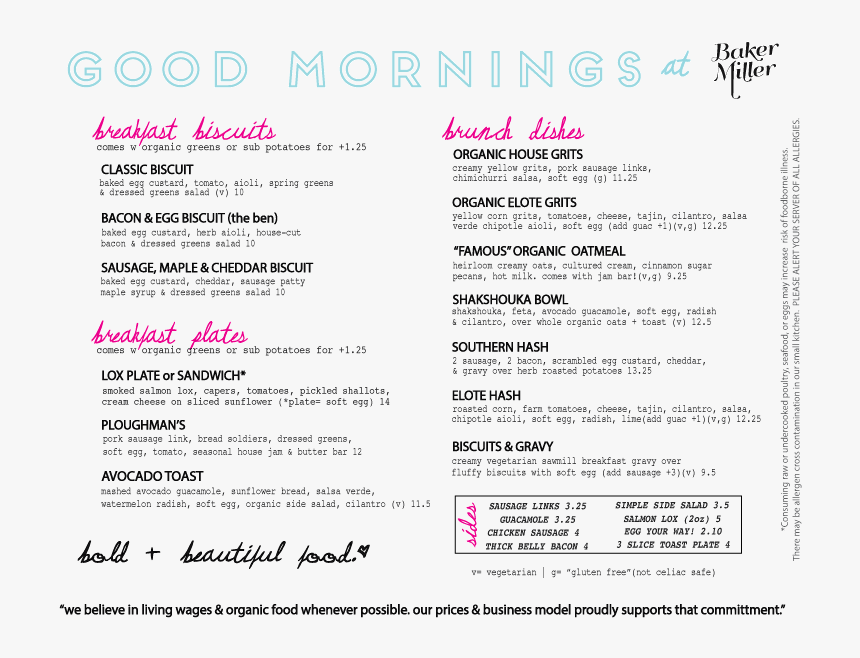 GOOD MORNINGS at Baker Miller
breakfast biscuits
comes w organic greens or sub potatoes for +1.25
CLASSIC BISCUIT
baked egg custard, tomato, aioli, spring greens
& dressed greens salad (v) 10
BACON & EGG BISCUIT (the ben)
baked egg custard, herb aioli, house-cut
bacon & dressed greens salad 10
SAUSAGE, MAPLE & CHEDDAR BISCUIT
baked egg custard, cheddar, sausage patty
maple syrup & dressed greens salad 10
breakfast plates
comes w organic greens or sub potatoes for +1.25
LOX PLATE or SANDWICH*
smoked salmon lox, capers, tomatoes, pickled shallots,
cream cheese on sliced sunflower (*plate= soft egg) 14
PLOUGHMAN'S
pork sausage link, bread soldiers, dressed greens,
soft egg, tomato, seasonal house jam & butter bar 12
AVOCADO TOAST
mashed avocado guacamole, sunflower bread, salsa verde,
watermelon radish, soft egg, organic side salad, cilantro (v) 11.5
bold + beautiful food.
brunch dishes
ORGANIC HOUSE GRITS
creamy yellow grits, pork sausage links,
chimichurri salsa, soft egg (g) 11.25
ORGANIC ELOTE GRITS
yellow corn grits, tomatoes, cheese, tajin, cilantro, salsa
verde chipotle aioli, soft egg (add guac +1)(v,g) 12.25
“FAMOUS” ORGANIC OATMEAL
heirloom creamy oats, cultured cream, cinnamon sugar
pecans, hot milk. comes with jam bar!(v,g) 9.25
SHAKSHOUKA BOWL
shakshouka, feta, avocado guacamole, soft egg, radish
& cilantro, over whole organic oats + toast (v) 12.5
SOUTHERN HASH
2 sausage, 2 bacon, scrambled egg custard, cheddar,
& gravy over herb roasted potatoes 13.25
ELOTE HASH
roasted corn, farm tomatoes, cheese, tajin, cilantro, salsa,
chipotle aioli, soft egg, radish, lime(add guac +1)(v,g) 12.25
BISCUITS & GRAVY
creamy vegetarian sawmill breakfast gravy over
fluffy biscuits with soft egg (add sausage +3)(v) 9.5
sides
SAUSAGE LINKS 3.25
GUACAMOLE 3.25
CHICKEN SAUSAGE 4
THICK BELLY BACON 4
SIMPLE SIDE SALAD 3.5
SALMON LOX (2oz) 5
EGG YOUR WAY! 2.10
3 SLICE TOAST PLATE 4
v= vegetarian | g= “gluten free”(not celiac safe)
*Consuming raw or undercooked poultry, seafood, or eggs may increase risk of foodborne illness.
There may be allergen cross contamination in our small kitchen. PLEASE ALERT YOUR SERVER OF ALL ALLERGIES.
“we believe in living wages & organic food whenever possible. our prices & business model proudly supports that committment.”